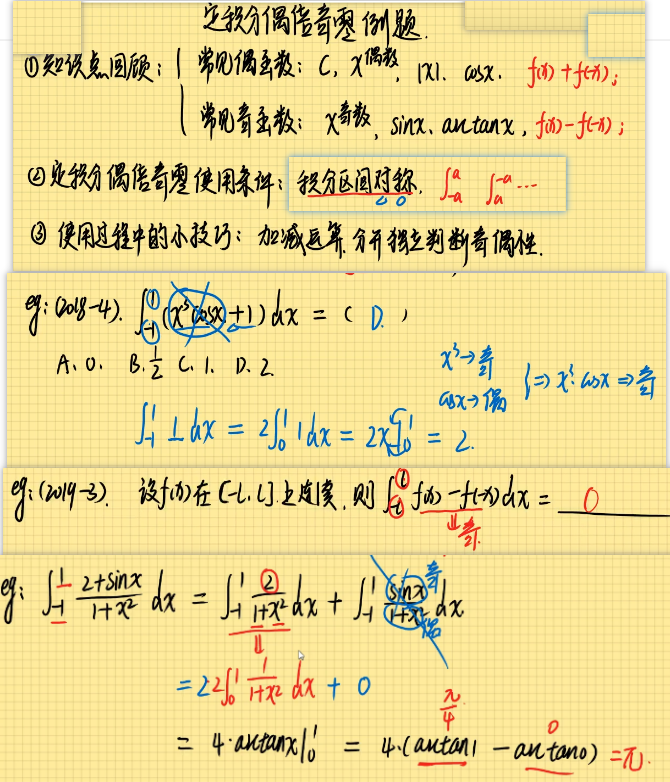 定积分偶倍奇零例题.
①知识点回顾: { 常见偶函数: C, x^偶数, |x|, cosx. f(x)+f(-x);
常见奇函数: x^奇数, sinx, arctanx, f(x)-f(-x);
②定积分偶倍奇零使用条件: 积分区间对称. ∫_{-a}^{a} ∫_{a}^{-a} ...
③ 使用过程中的小技巧: 加减运算.分开独立判断奇偶性.
eg: (2018-4). ∫_{-1}^{1} (x³cosx+1)dx = ( D. )
A. 0. B. 1/2 C. 1. D. 2.
x³→奇
cosx→偶 } ⇒ x³·cosx ⇒ 奇
∫_{-1}^{1} 1dx = 2∫_{0}^{1} 1dx = 2x|_{0}^{1} = 2.
eg: (2019-3). 设f(x)在[-L, L]上连续, 则 ∫_{-L}^{L} f(x)-f(-x)dx = 0
⇓ 奇.
eg: ∫_{-1}^{1} (2+sinx)/(1+x²) dx = ∫_{-1}^{1} 2/(1+x²) dx + ∫_{-1}^{1} sinx/(1+x²) dx 奇 偶
⇓
= 2·2∫_{0}^{1} 1/(1+x²) dx + 0
= 4·arctanx|_{0}^{1} = 4·(arctan1 - arctan0) = π.
π/4 0